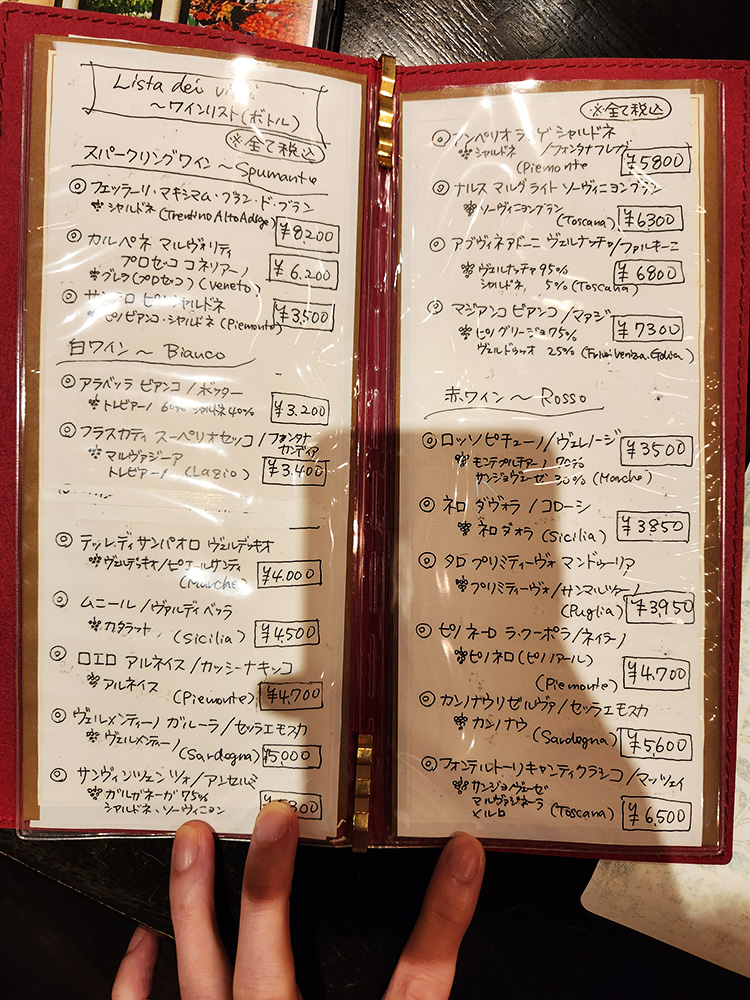 Lista dei vi
～ワインリスト(ボトル)
※全て税込
スパークリングワイン～Spumante
◎フェッラーリ・マキシマム・ブラン・ド・ブラン
シャルドネ (Trentino Alto Adige)
¥8,200
◎カルペネ マルヴォリティ
プロセッコ コネリアーノ
¥6,200
グレラ(プロセッコ) (Veneto)
◎サンテロ ピノシャルドネ
¥3,500
ピノビアンコ・シャルドネ (Piemonte)
白ワイン～Bianco
◎アラベッラ ビアンコ/ボッター
トレビアーノ 60% シャルドネ40%
¥3.200
◎フラスカティ スーペリオセッコ/フォンタナ
カンディア
マルヴァジーア
トレビアーノ (Lazio)
¥3.400
◎テッレ・ディ サンパオロ ヴェルデッキオ
(Marche)
¥4.000
◎ムニール/ヴァルディベッラ
カタラット (Sicilia)
¥4,500
◎ロエロ アルネイス/カッシーナキッコ
アルネイス
(Piemonte)
¥4,700
◎ヴェルメンティーノ ガルーラ/セッラエモスカ
ヴェルメンティーノ
(Sardegna)
¥5,000
◎サンヴィンツェンツォ/アンセルミ
ガルガネーガ 75%
シャルドネ、ソーヴィニヨン
※全て税込
◎アンペリオ ランゲ シャルドネ
シャルドネ /フォンタナフレッダ
(Piemonte
¥5800
◎ナルス マルグライト ソーヴィニヨンブラン
ソーヴィニヨンブラン
(Toscana)
¥6300
◎アブヴィネアドーニ ヴェルナッチャ/ファルキーニ
ヴェルナッチャ 95%
シャルドネ、5% (Toscana)
¥6800
◎マジアンコ ビアンコ/マァジ
¥7300
ピノグリージョ 75%
ヴェルドゥッオ 25%
赤ワイン～Rosso
◎ロッソピチェーノ/ヴェレノージ
¥3500
モンテプルチアーノ 70%
サンジョヴェーゼ 30% (Marche)
◎ネロ ダヴォラ/コローシ
ネロダオラ (Sicilia)
¥3850
◎タロ プリミティーヴォ マンドゥーリア
プリミティーヴォ/サンマルツァーノ
(Puglia)
¥3,950
◎ピノネーロ ラ・クーポラ/ネイラーノ
ピノネロ(ピノノアール)
(Piemonte)
¥4,700
◎カンノナウリゼルヴァ/セッラエモスカ
カンノナウ (Sardegna)
¥5,600
◎フォンテルトーリキャンティクラシコ/マッツェイ
サンジョヴェーゼ
マルヴァジネーラ
メルロ (Toscana)
¥6,500